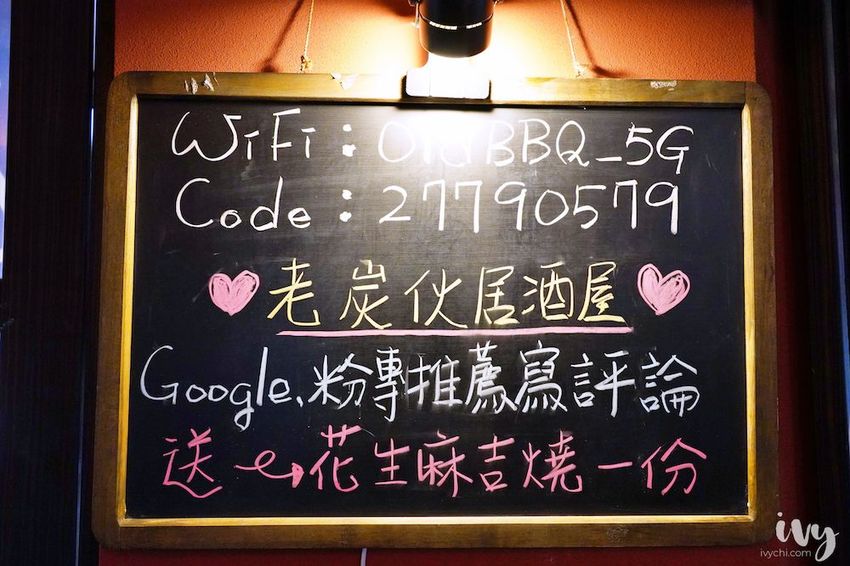 WiFi：OldBBQ_5G
Code：27790579
老炭伙居酒屋
Google、粉專推薦寫評論
送→花生麻吉燒一份
ivy
ivychi.com